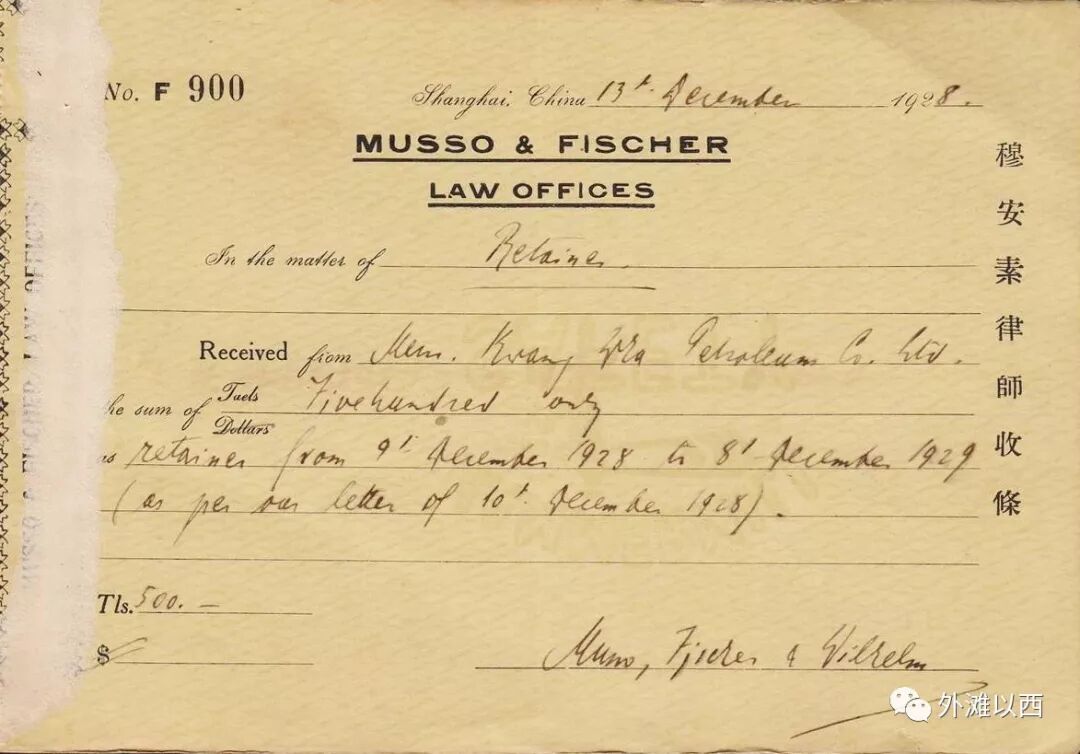 No. F 900
Shanghai, China 13t. December 1928.
MUSSO & FISCHER
LAW OFFICES
In the matter of Retainer.
Received from Mess. Kwang Wha Petroleum Co. Ltd.
the sum of Taels Dollars Fivehundred only
as retainer from 9t December 1928 to 8t December 1929
(as per our letter of 10t. December 1928).
Tls. 500.—
$
Musso, Fischer & Wilhelm
穆安素律師收條
MUSSO & FISCHER LAW OFFICES
外滩以西